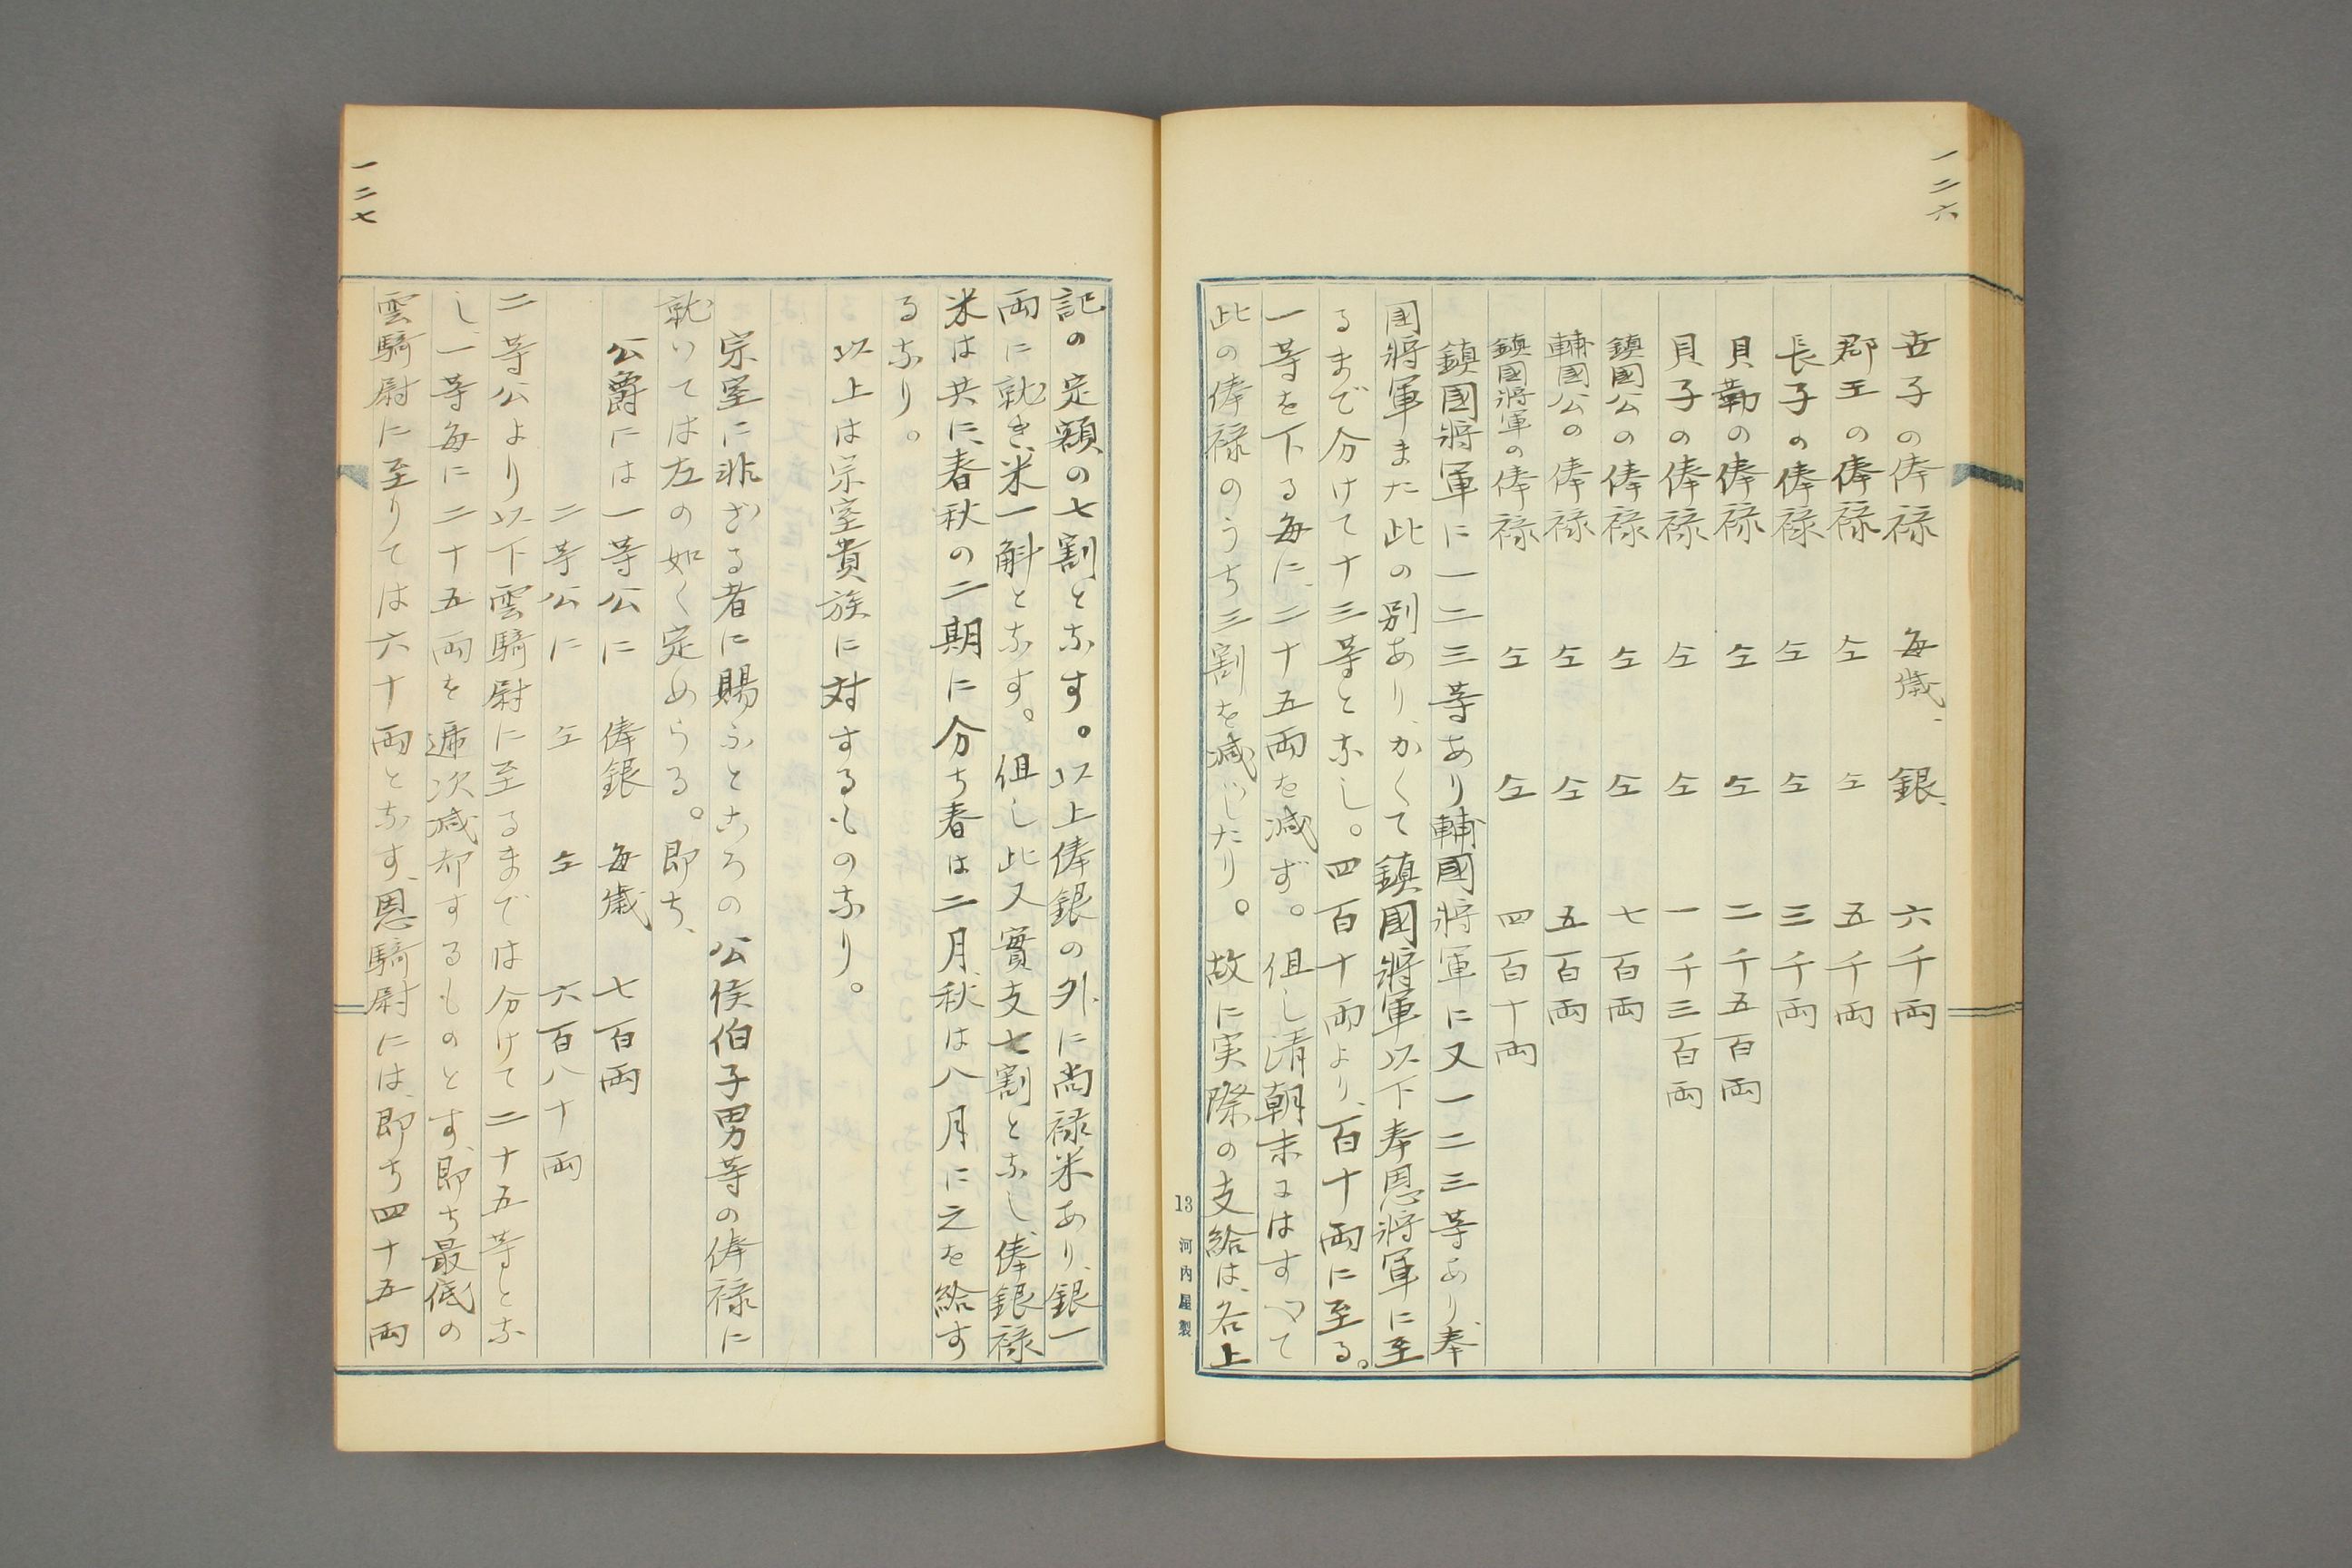 一二六
世子の俸禄 毎歳、銀、六千両
郡王の俸禄 仝 仝 五千両
長子の俸禄 仝 仝 三千両
貝勒の俸禄 仝 仝 二千五百両
貝子の俸禄 仝 仝 一千三百両
鎮國公の俸禄 仝 仝 七百両
輔國公の俸禄 仝 仝 五百両
鎮國将軍の俸禄 仝 仝 四百十両
鎮國將軍に一二三等あり輔國将軍に又一二三等あり、奉
国將軍また此の別あり、かくて鎮國將軍以下奉恩將軍に至
るまで分けて十三等となし。四百十両より、百十両に至る。
一等を下る毎に、二十五両を減ず。但し清朝末にはすべて
此の俸禄のうち三割を減じたり。故に実際の支給は、各上
13 河内屋製
一二七
記の定額の七割となす。以上俸銀の外に尚禄米あり、銀一
両に就き、米一斛となす。但し此又實支七割となし、俸銀禄
米は共に、春秋の二期に分ち春は二月、秋は八月に之を給す
るなり。
以上は宗室貴族に対するものなり。
宗室に非ざる者に賜ふところの公侯伯子男等の俸禄に
就いては左の如く定めらる。即ち、
公爵には一等公に 俸銀 毎歳 七百両
二等公に 仝 仝 六百八十両
二等公より以下雲騎尉に至るまでは分けて二十五等とな
し、一等毎に二十五両を逓次減却するものとす、即ち最低の
雲騎尉に至りては六十両となす、恩騎尉には、即ち四十五両